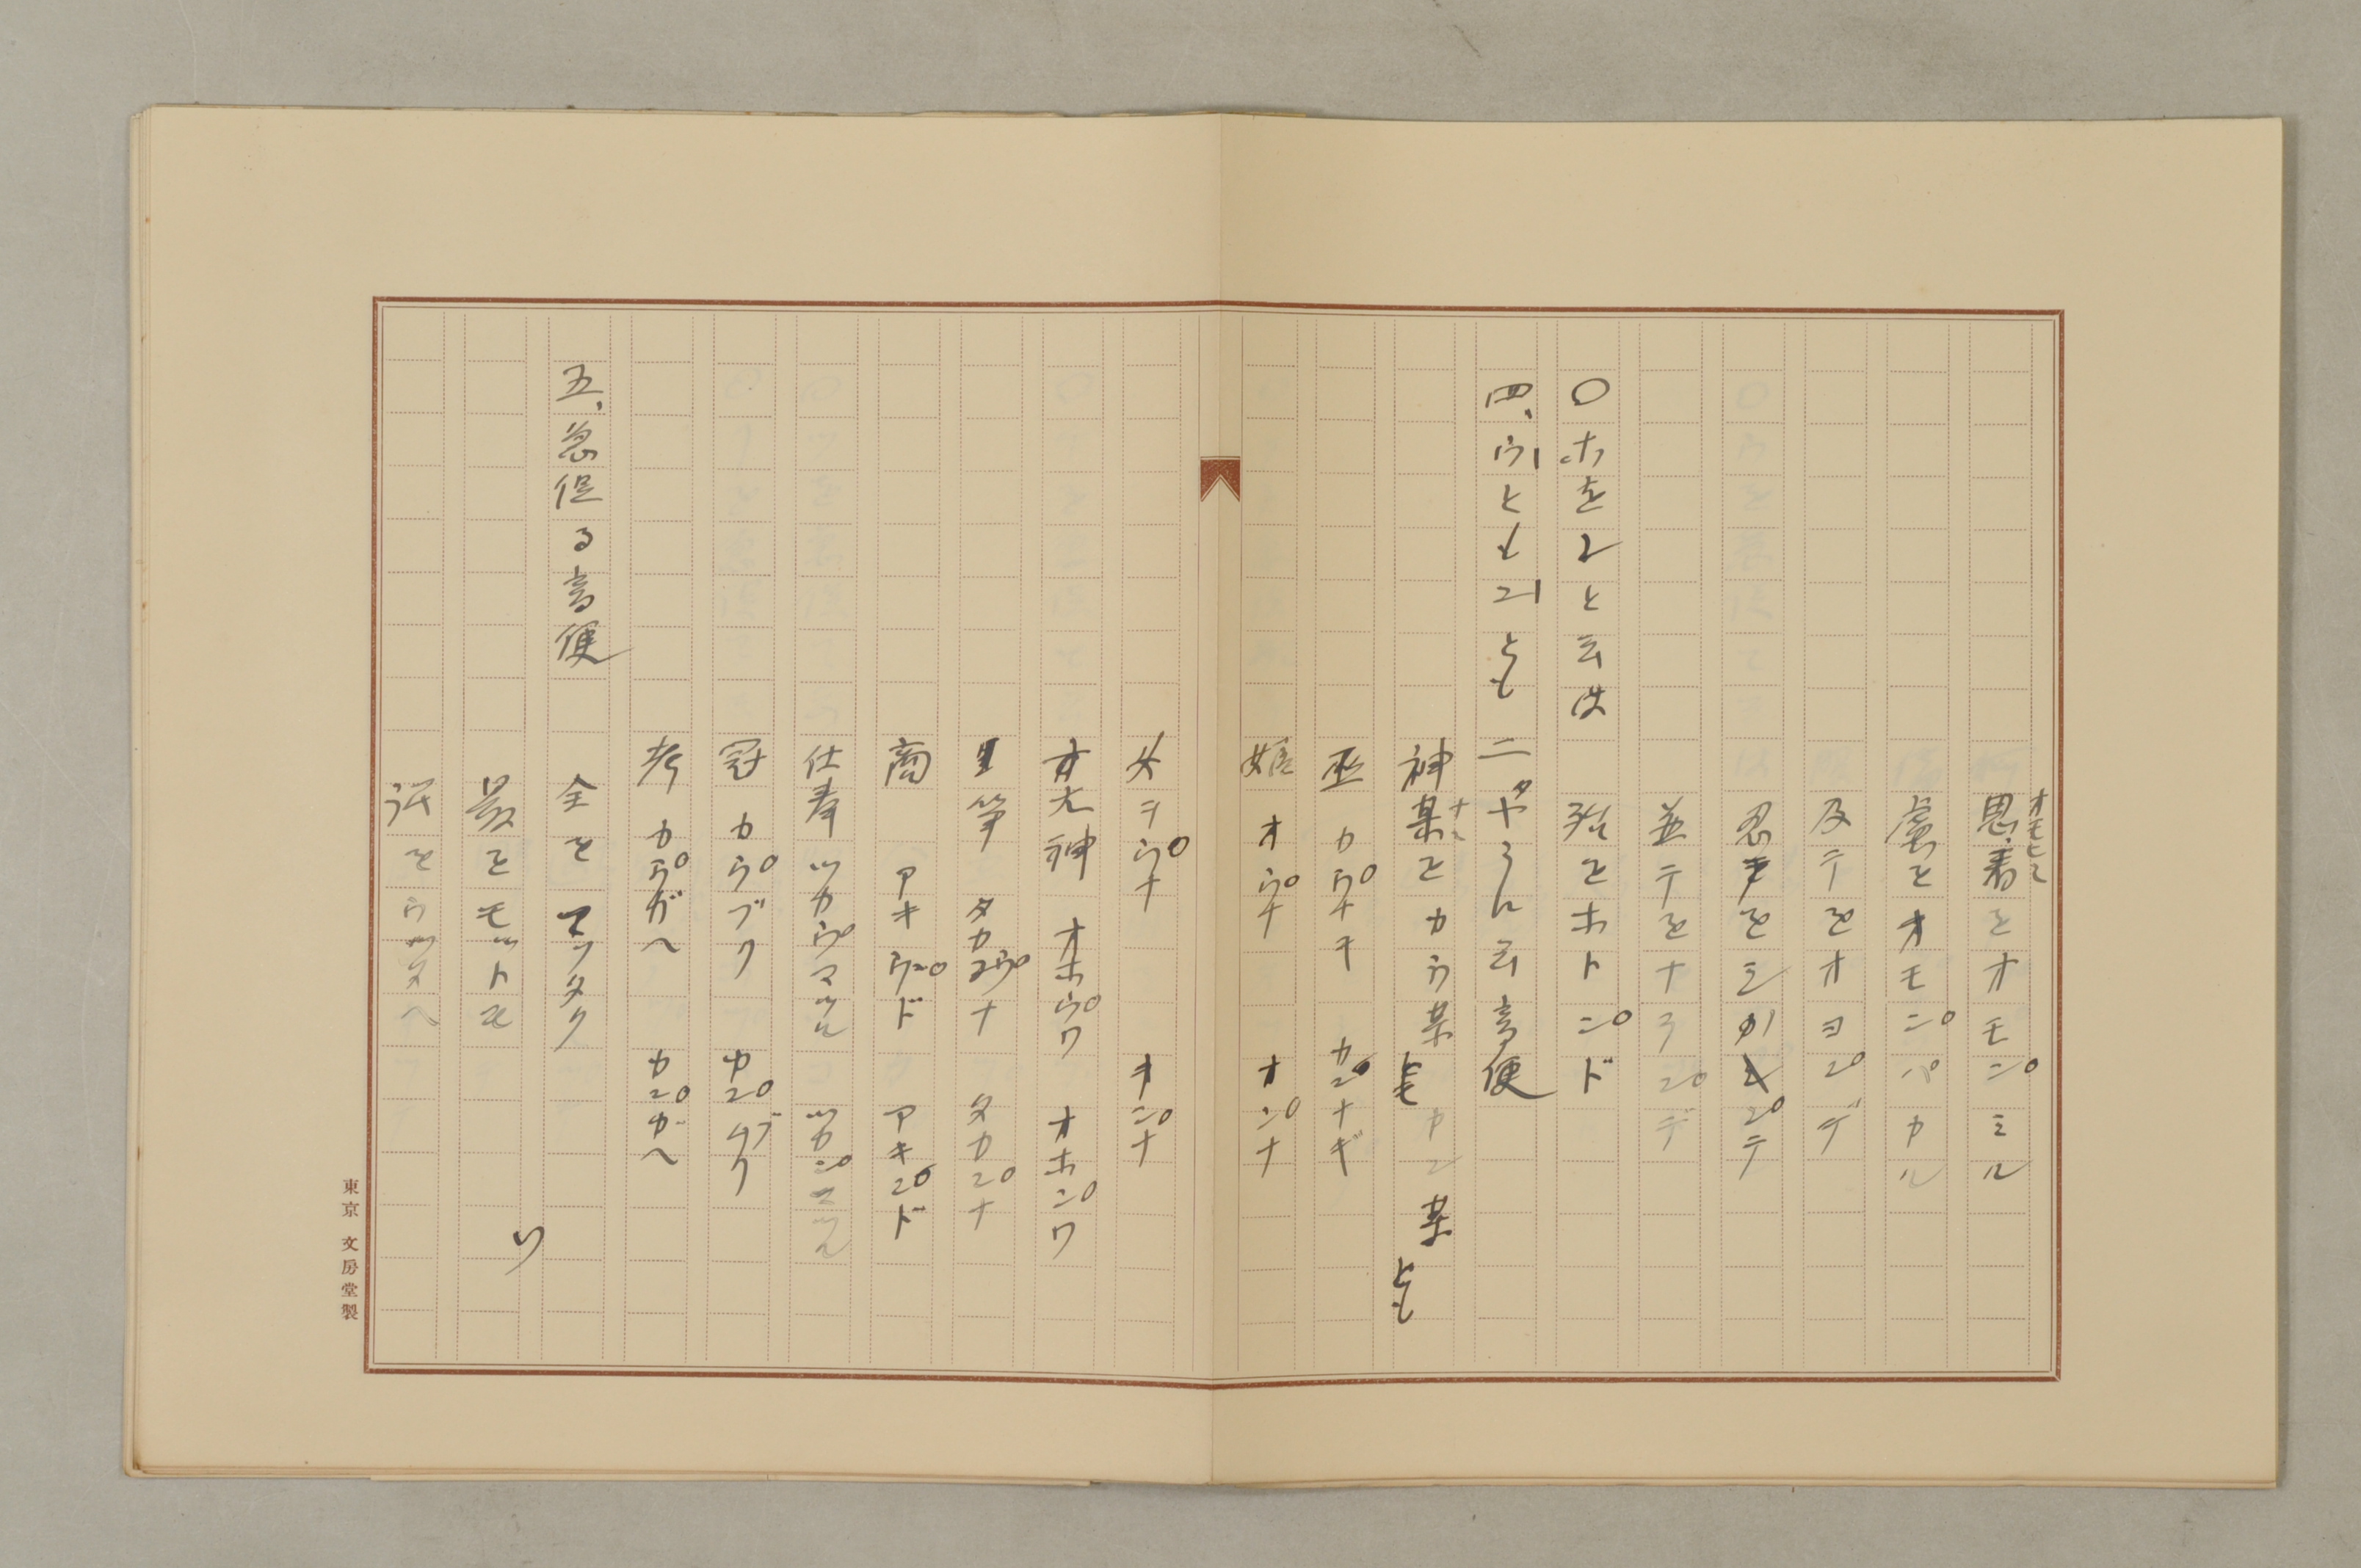 思看をオモンミル
慮をオモンパカル
及テをオヨンデ
忍をシンテ
並テをナランデ
殆をホトンド
〇ホをンと云は
四、ウともンとも二やうに云音便
神某をカウ某とも カン某とも
巫 カウナキ カンナギ
嫗 オウナ オンナ
女 ヲウナ ヲンナ
大神 オホウワ オホンワ
筝 タカウナ タカンナ
商 アキウド アキンド
仕奉 ツカウマツル ツカンマツル
冠 カウブク カンブク
考 カウガヘ カンガヘ
五、急促る音便
全を マッタク
最をモットモ
訴をウッタヘ
東京 文房堂製